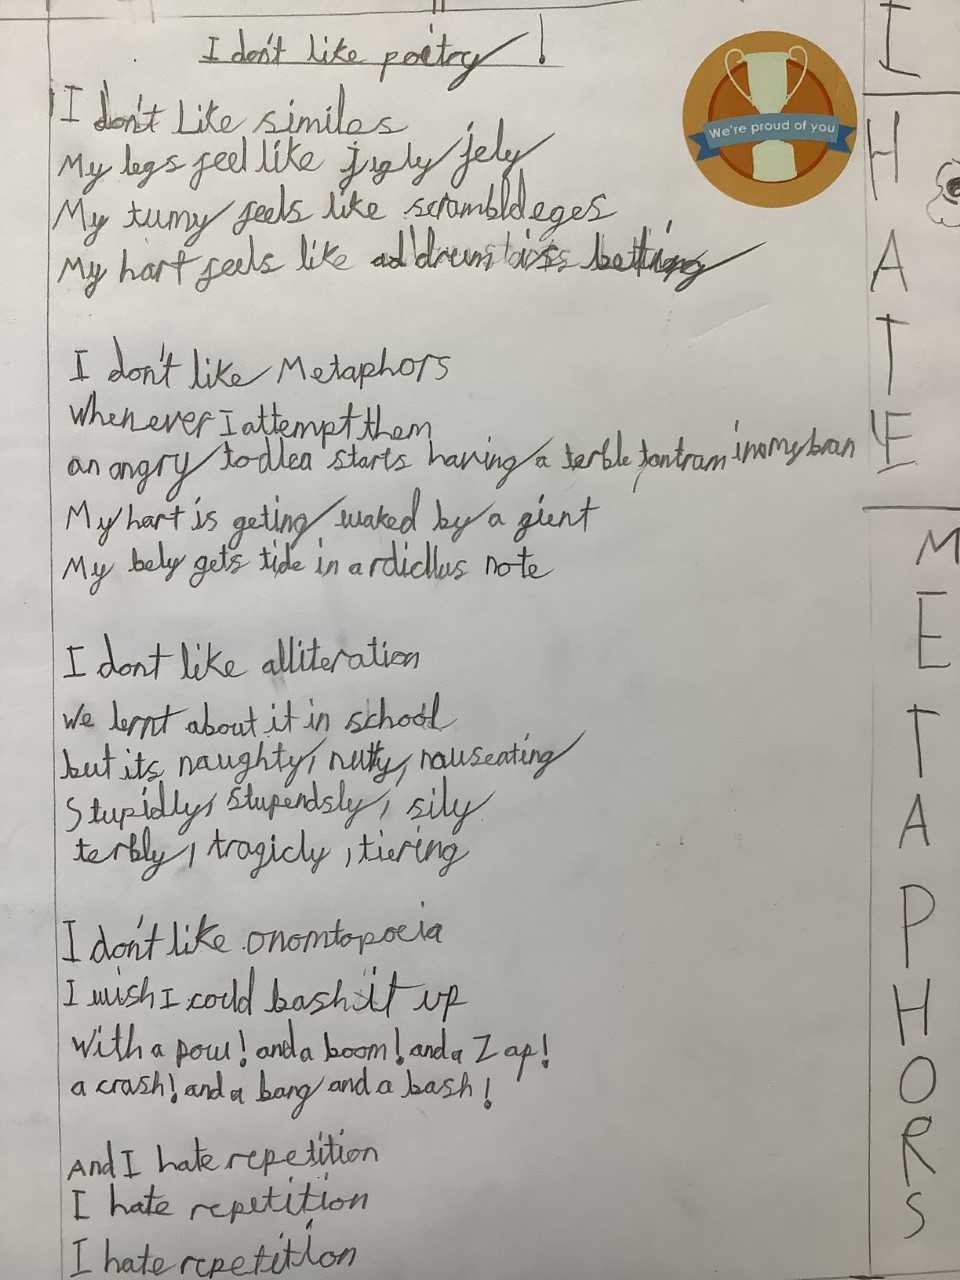 I don't like poetry!
We're proud of you
I don't like similes
My legs feel like jigly jely
My tumy feels like scrambld eges
My hart feels like drum betting
I don't like Metaphors
whenever I attempt them
an angry todlea starts having a terble tantram in my bran
My hart is geting waked by a gient
My bely gets tide in a rdicllus note
I dont like alliteration
We lernt about it in school
but its naughty, nutty, nauseating
Stupidly, stupendsly, sily
terbly, tragicly, tiering
I don't like onomtopoeia
I wish I could bash it up
With a pow! and a boom! and a Zap!
a crash! and a bang and a bash!
And I hate repetition
I hate repetition
I hate repetition
I
HATE
METAPHORS